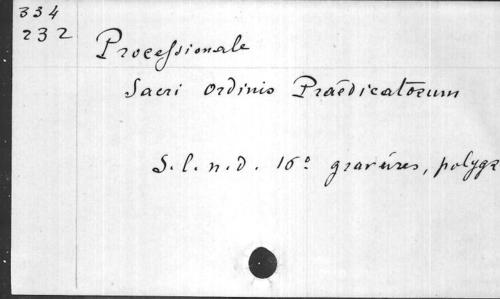 334
232
Processionale
Sacri Ordinis Praedicatorum
S.l.n.d. 16° gravures, polygr